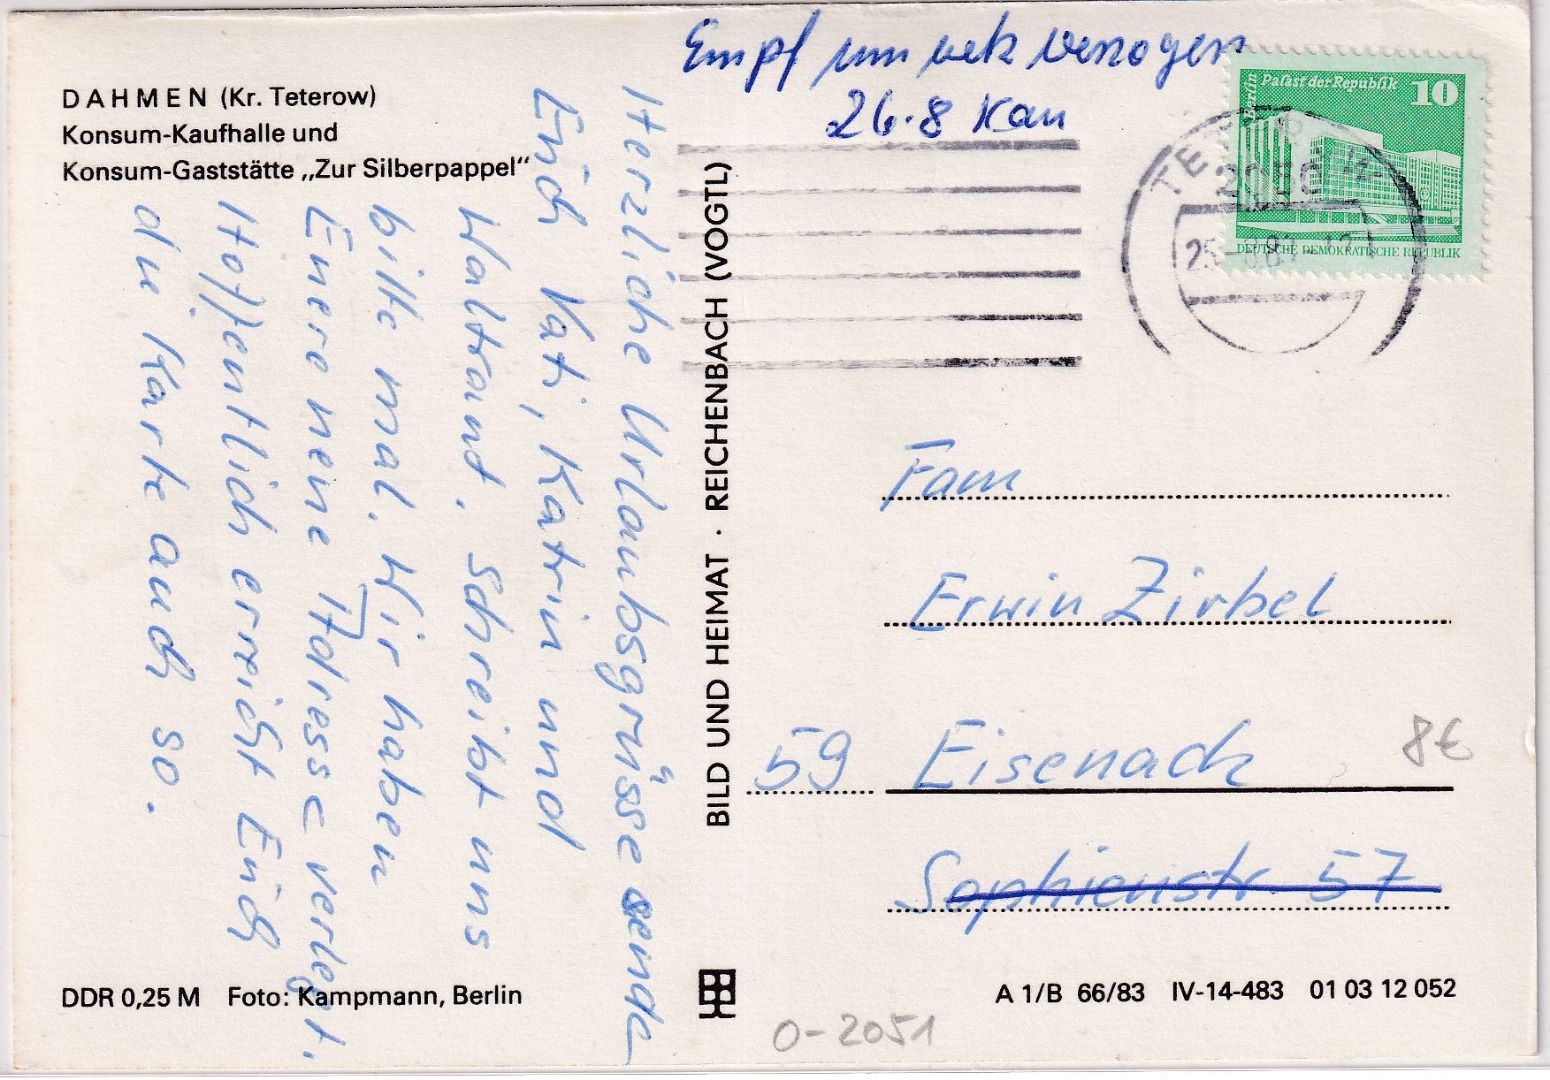 DAHMEN (Kr. Teterow)
Konsum-Kaufhalle und
Konsum-Gaststätte „Zur Silberpappel"
Herzliche Urlaubsgrüsse sendet
Euch Vati, Katrin und
Waltraud. Schreibt uns
bitte mal. Wir haben
Euere neue Adresse verlegt.
Hoffentlich erreicht Euch
die Karte auch so.
DDR 0,25 M Foto: Kampmann, Berlin
BILD UND HEIMAT · REICHENBACH (VOGTL)
Empf verzogen
26.8
Berlin
Palast der Republik 10
DEUTSCHE DEMOKRATISCHE REPUBLIK
Fam
Erwin Zirbel
59 Eisenach
8€
Sophienstr. 57
A 1/B 66/83 IV-14-483 01 03 12 052
O-2051